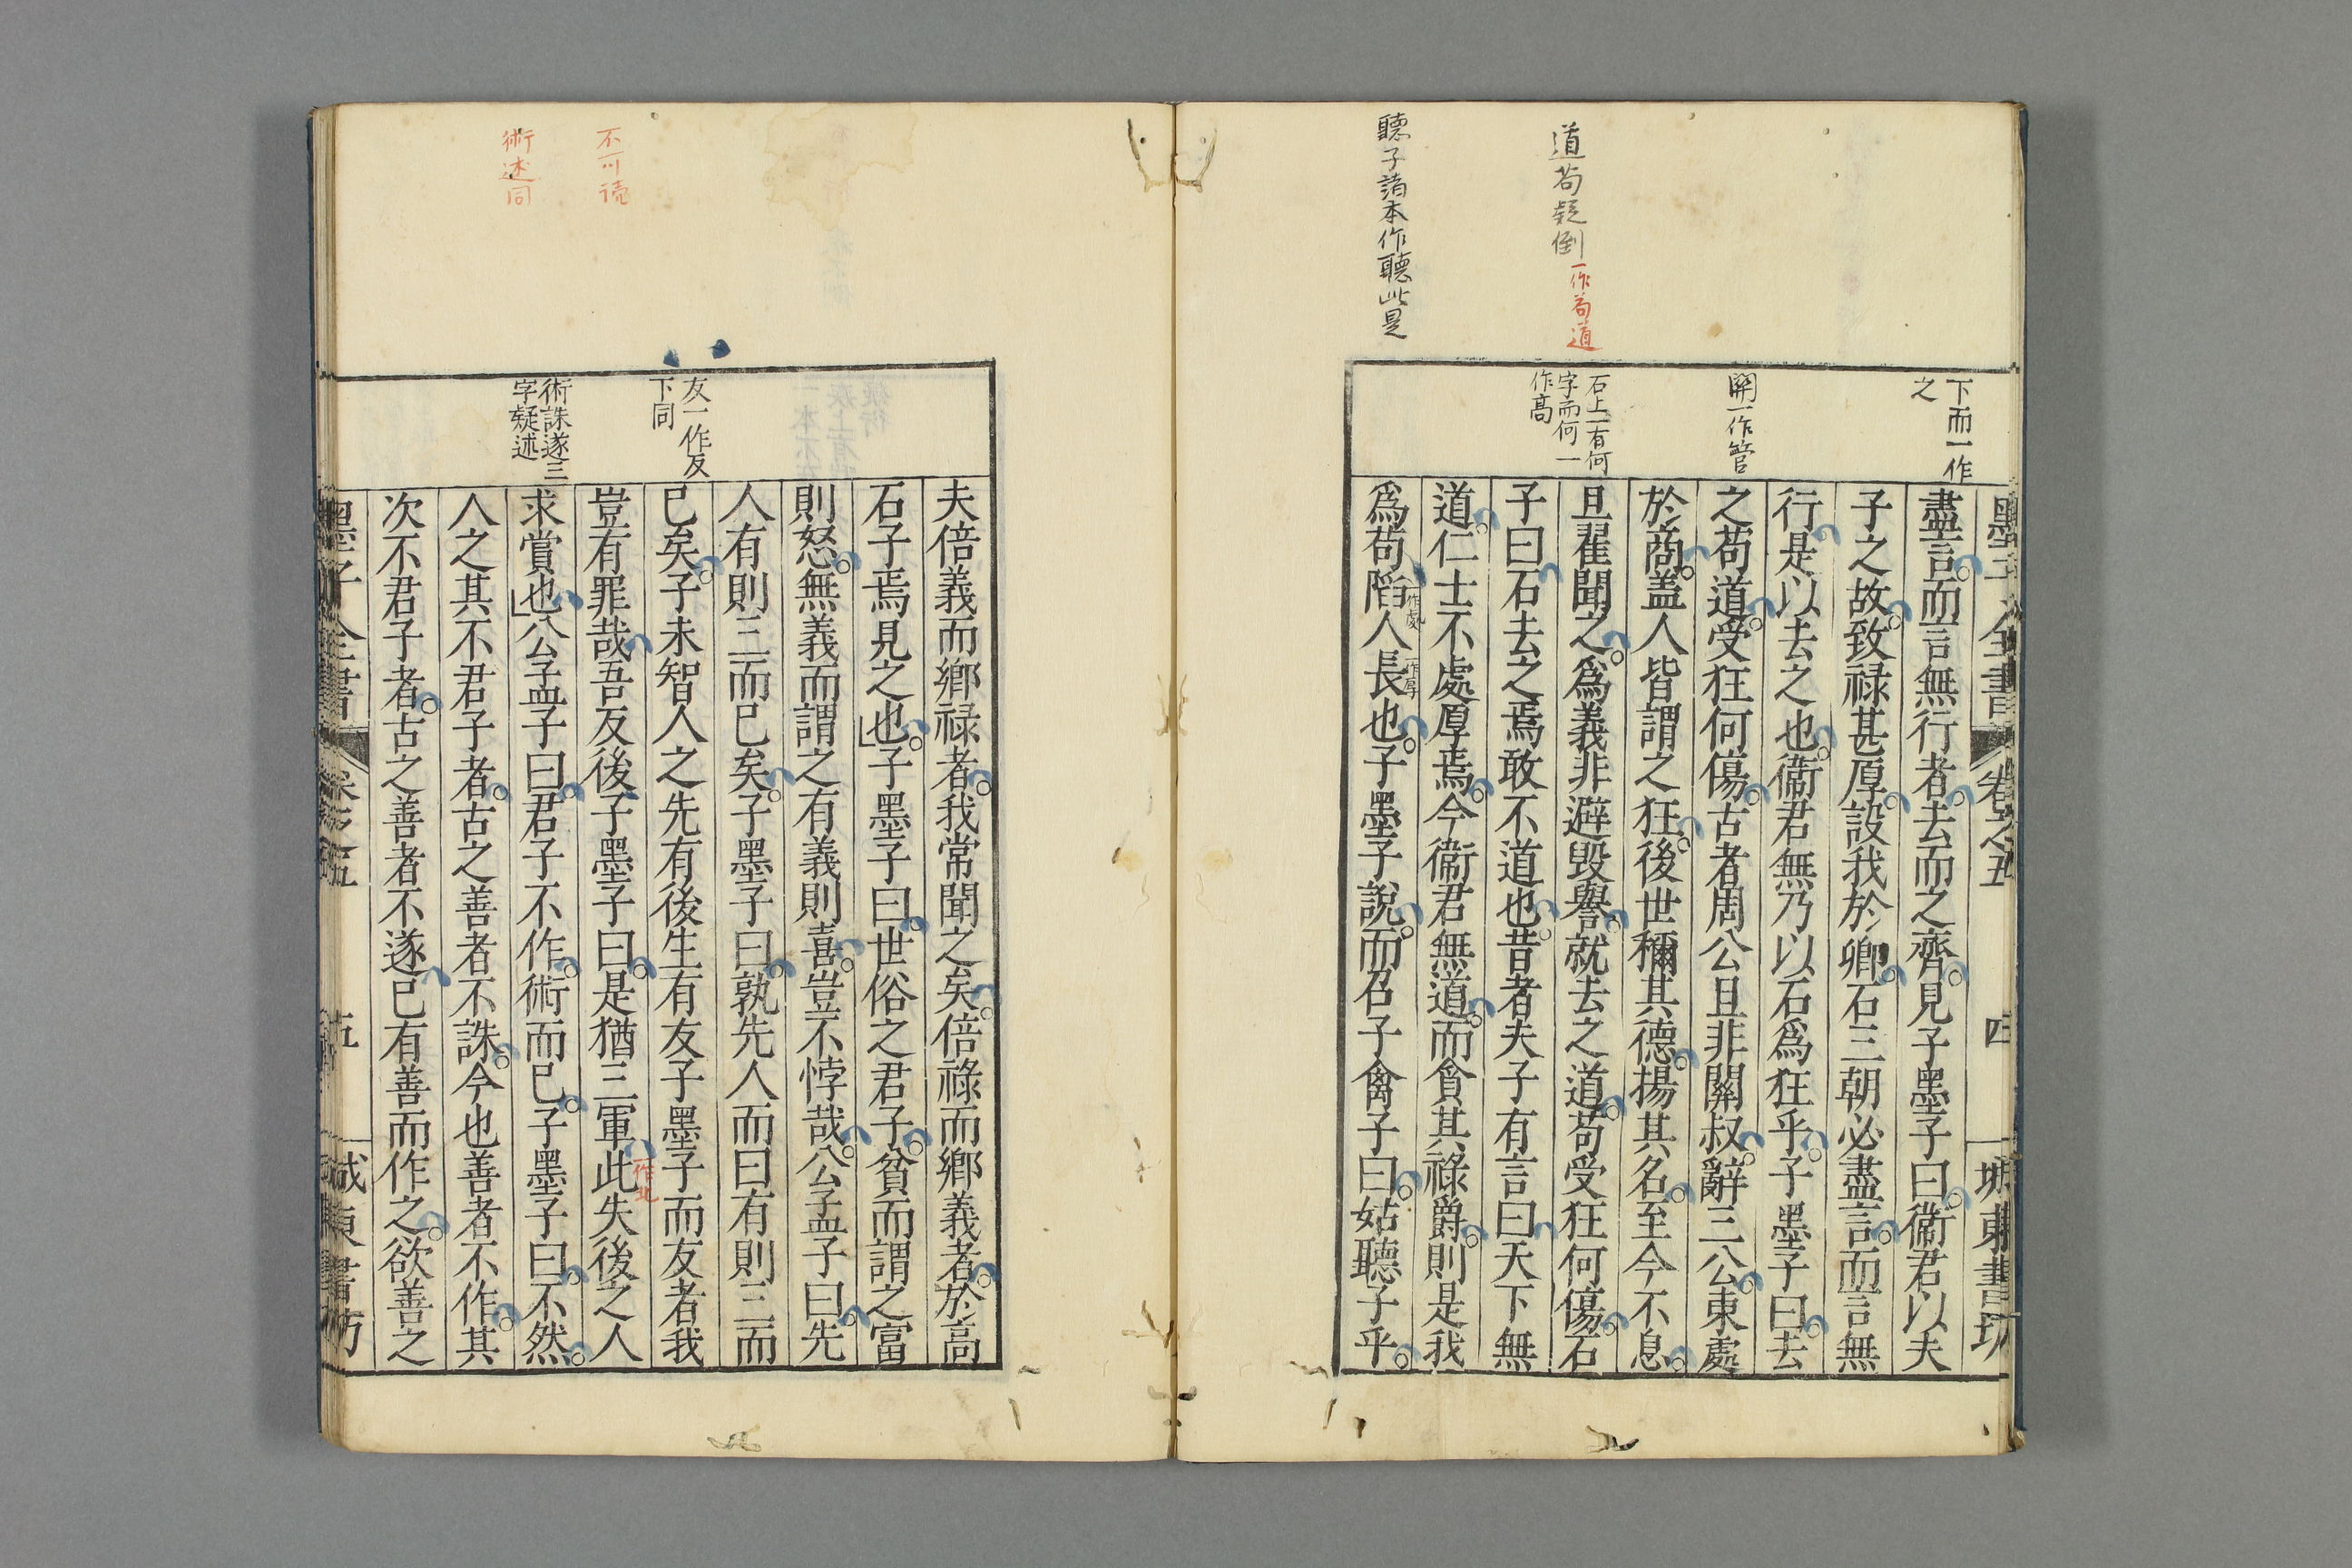 道苟疑倒一作苟道
聽子諸本作聽此是
下而一作
之
關一作管
石上一有何
字而何一
作高
墨子全書 卷之五 四 城東書坊
盡言而言無行者去而之齊見子墨子曰衞君以夫
子之故致禄甚厚設我於卿石三朝必盡言而言無
行是以去之也衞君無乃以石爲狂乎子墨子曰去
之苟道受狂何傷古者周公旦非關叔辭三公東處
於商盖人皆謂之狂後世稱其德揚其名至今不息
且翟聞之爲義非避毀譽就去之道苟受狂何傷石
子曰石去之焉敢不道也昔者夫子有言曰天下無
道仁士不處厚焉今衞君無道而貪其禄爵則是我
爲苟陷人長也子墨子說而召子禽子曰姑聽子乎
一作處
一作厚
不可読
術述同
友一作反
下同
術誅遂三
字疑述
夫倍義而鄉禄者我常聞之矣倍祿而鄉義者於高
石子焉見之也子墨子曰世俗之君子貧而謂之富
則怒無義而謂之有義則喜豈不悖哉公孟子曰先
人有則三而已矣子墨子曰孰先人而曰有則三而
已矣子未智人之先有後生有友子墨子而友者我
豈有罪哉吾反後子墨子曰是猶三軍此失後之人
一作北
求賞也公孟子曰君子不作術而已子墨子曰不然
人之其不君子者古之善者不誅今也善者不作其
次不君子者古之善者不遂已有善而作之欲善之
墨子全書 卷之五 五 城東書坊